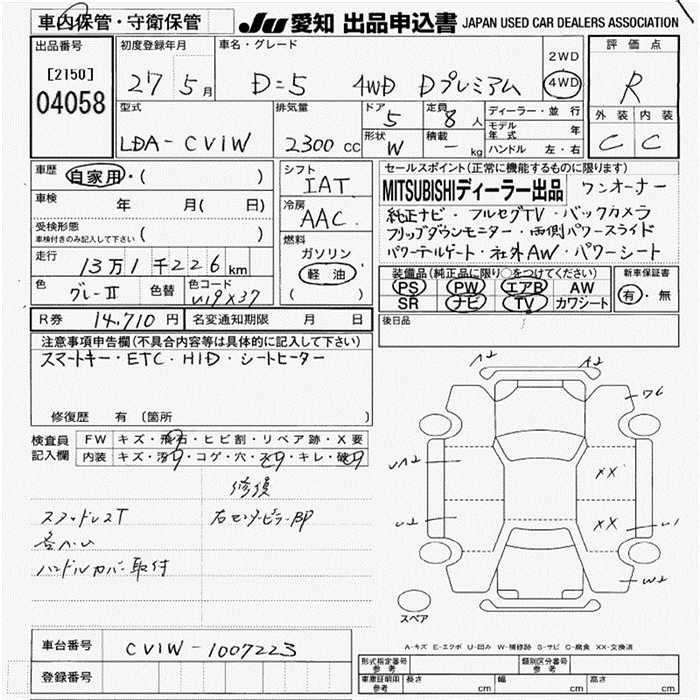 車内保管・守衛保管 JU 愛知 出品申込書 JAPAN USED CAR DEALERS ASSOCIATION
出品番号 初度登録年月 車名・グレード 評価点
[2150] 27年5月 D=5 4WD Dプレミアム 2WD 4WD R
04058
型式 排気量 ドア 5 定員 8人 ディーラー・並行 外装 内装
LDA-CV1W 2300cc 形状 W 積載 - kg モデル年式 年 C C
ハンドル 左・右
車歴 自家用・( ) シフト IAT セールスポイント(正常に機能するものに限ります)
車検 年 月( 日) 冷房 AAC MITSUBISHIディーラー出品 ワンオーナー
受検形態 車検付きのみ記入して下さい ( ) 純正ナビ・フルセグTV・バックカメラ
燃料 ガソリン 軽油 ( ) フリップダウンモニター・両側パワースライド
走行 13万1千226km パワーテルゲート・社外AW・パワーシート
色 グレーII 色替 色コード U19X37 装備品(純正品に限り○をつけてください) 新車保証書
PS PW エアB AW 有・無
SR ナビ TV カワシート
R券 14,710円 名変通知期限 月 日 後日品
注意事項申告欄(不具合内容等は具体的に記入して下さい)
スマートキー・ETC・HID・シートヒーター
修復歴 有 (箇所 )
検査員記入欄 FW キズ・飛石・ヒビ割・リペア跡・X要
内装 キズ・汚・コゲ・穴・スレ・キレ・破
修復
スタッドレスT 右センターピラーBP
ハンドルカバー取付
A2 A2
W6
UA2 XX
U2 XX U1
W2
スペア
A-キズ E-エクボ U-凹み W-補修跡 S-サビ C-腐食 XX-交換済
車台番号 CV1W-1007223
登録番号
形式指定番号 参考 類別区分番号 参考
車庫証明用 参考 長さ cm 幅 cm 高さ cm